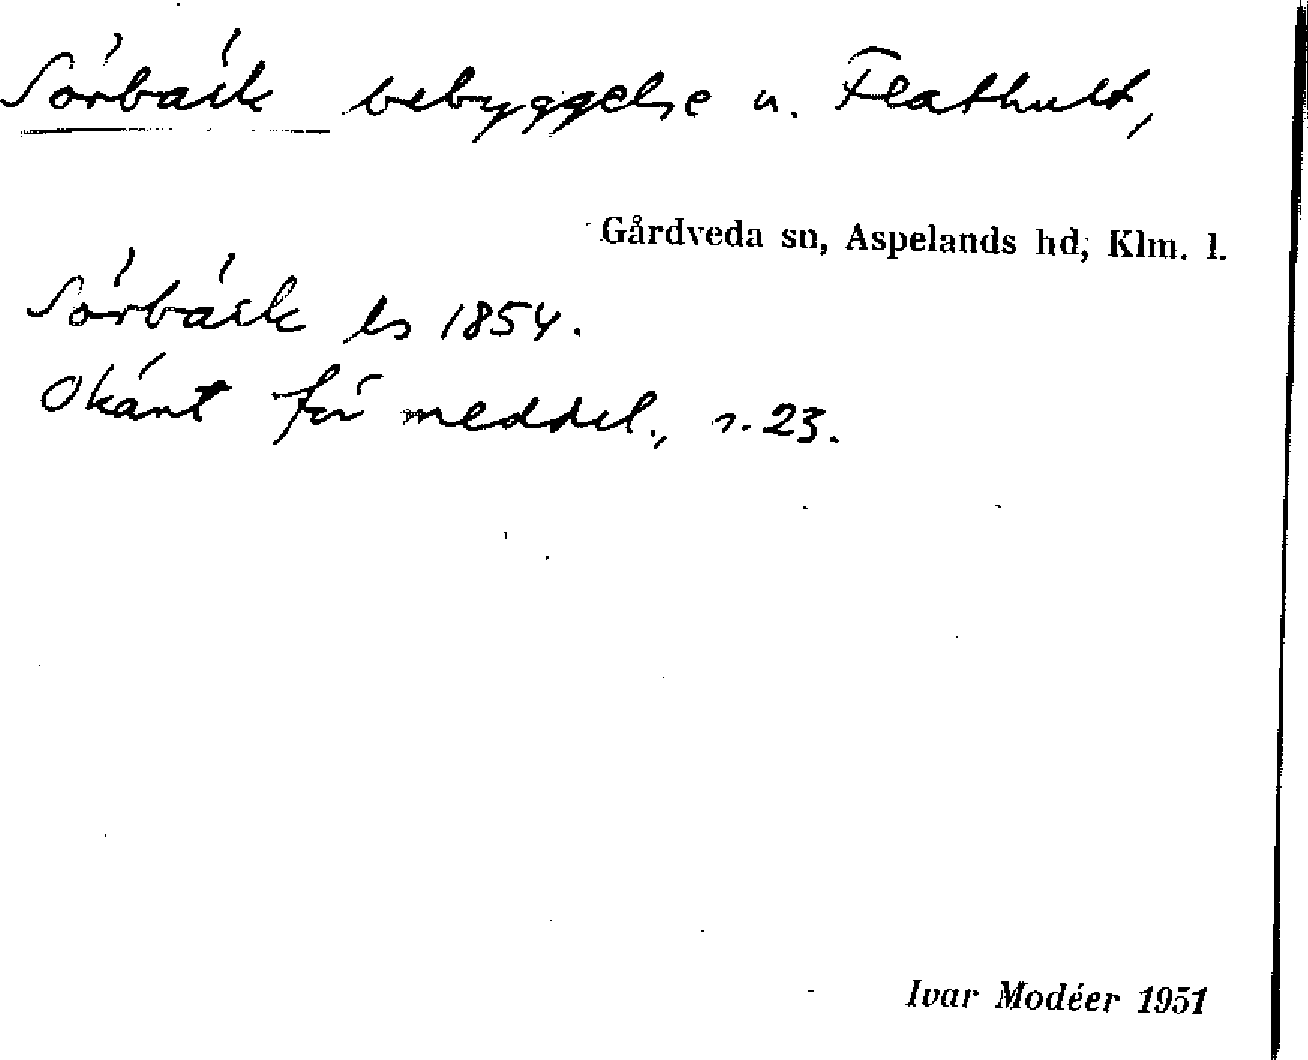 Sörbäck bebyggelse u. Flathult,
Gårdveda sn, Aspelands hd, Klm. l.
Sörbäck ls 1854.
Okänt för meddel., s. 23.
Ivar Modéer 1951